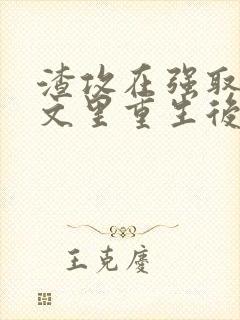 渣攻在强取
文里重生後
王克慶